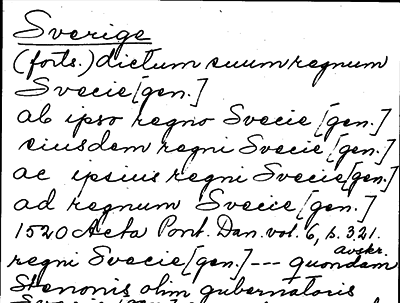 Sverige
(forts.) dictum suum regnum
Svecie [gen.]
ab ipso regno Svecie [gen.]
eiusdem regni Svecie [gen.]
ac ipsius regni Svecie [gen.]
ad regnum Svecie [gen.]
1520 Acta Pont. Dan. vol. 6, s. 321.
avskr.
regni Svecie [gen.] --- quondam
Stenonis olim gubernatoris